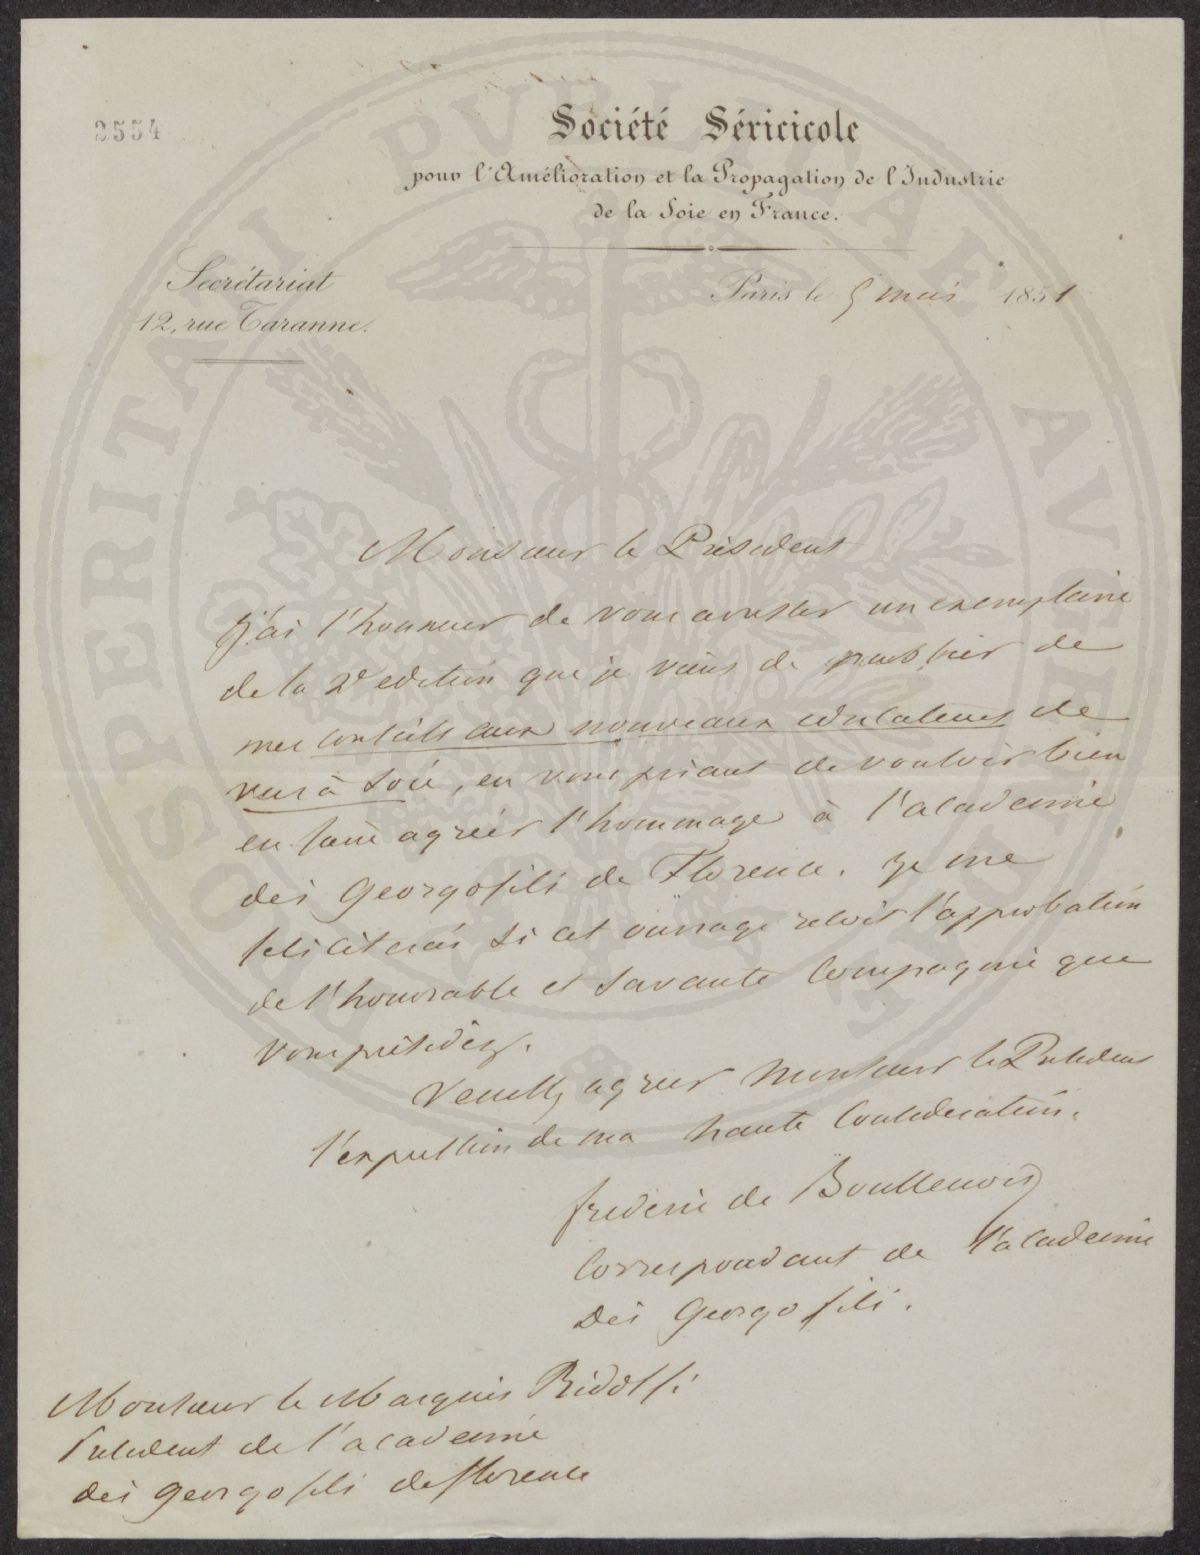 2554
Société Séricicole
pour l'Amélioration et la Propagation de l'Industrie
de la Soie en France.
Secrétariat
12, rue Taranne.
Paris le 5 mai 1851
Monsieur le Président
J'ai l'honneur de vous adresser un exemplaire
de la 2e edition que je viens de publier de
mes conseils aux nouveaux educateurs de
vers à soie, en vous priant de vouloir bien
en faire agréer l'hommage à l'academie
dei Georgofili de Florence. Je me
feliciterai si cet ouvrage reçoit l'approbation
de l'honorable et savante compagnie que
vous présidez.
Veuillez agréer Monsieur le Président
l'expression de ma haute consideration.
frederic de Boullenois
correspondant de l'academie
Dei Georgofili.
Monsieur le Marquis Ridolfi
Président de l'academie
dei georgofili de florence
PROSPERITATI PVBLICAE AVGENDAE